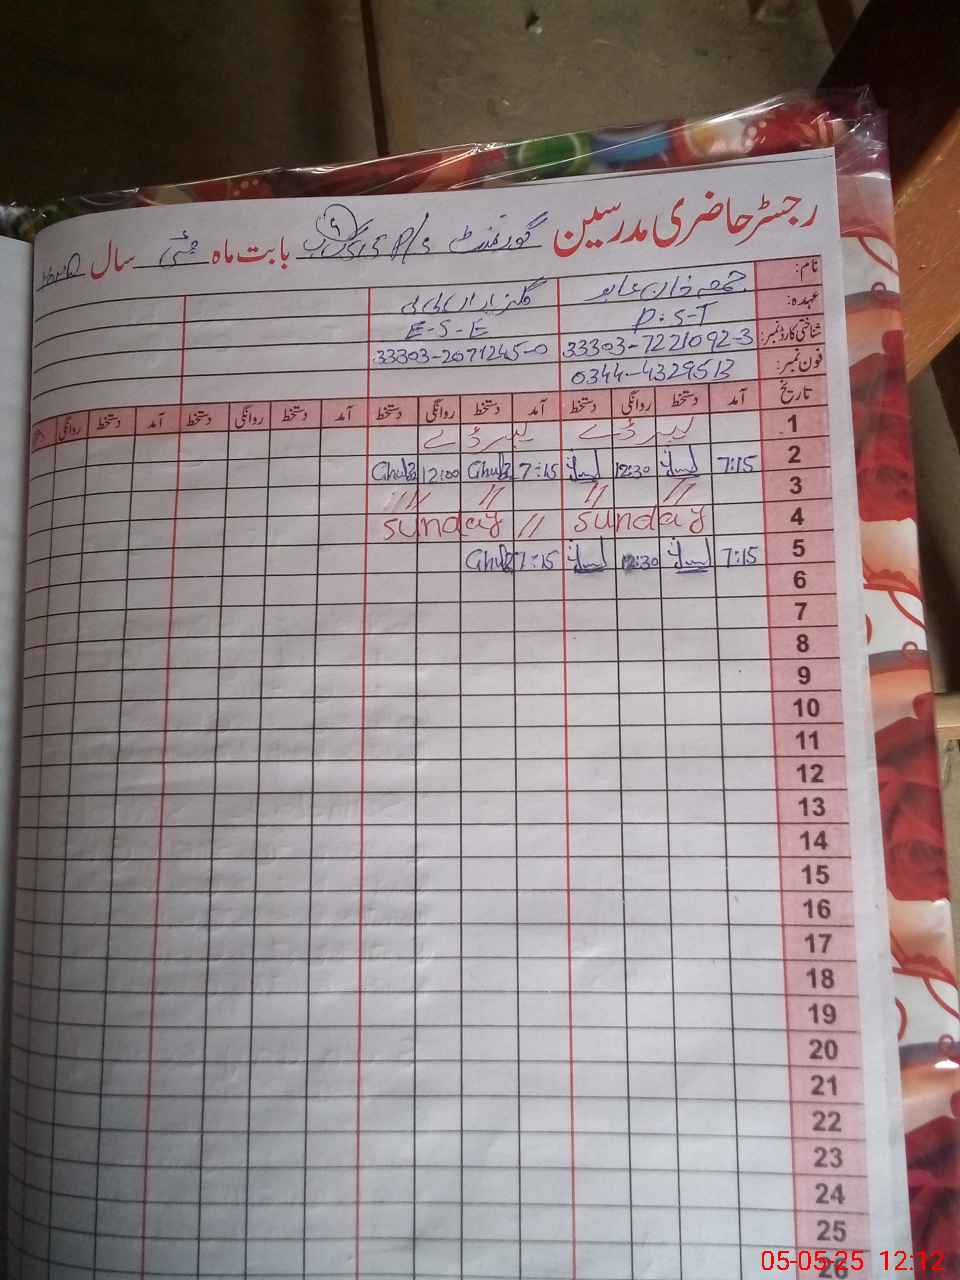 رجسٹر حاضری مدرسین گورنمنٹ P/S بابت ماہ مئی سال
نام:
عہدہ: P.S.T E-S-E
شناختی کارڈ نمبر: 33303-7221092-3 33303-2071245-0
فون نمبر: 0344-4329513
تاریخ آمد دستخط روانگی دستخط آمد دستخط روانگی دستخط آمد دستخط روانگی دستخط آمد دستخط روانگی
1 لیبر ڈے لیبر ڈے
2 7:15 12:30 7:15 12:00
3 // // // //
4 sunday // sunday
5 7:15 12:30 7:15
6
7
8
9
10
11
12
13
14
15
16
17
18
19
20
21
22
23
24
25
26
05-05-25 12:12